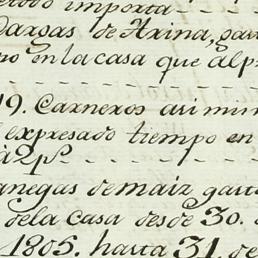 importa
de Arina, gas
en la casa que al p
19. Carneros asi mim
expresado tiempo en
à 2p.s
anegas de maiz gasta
dela casa desde 30. d
1805. hasta 31. de